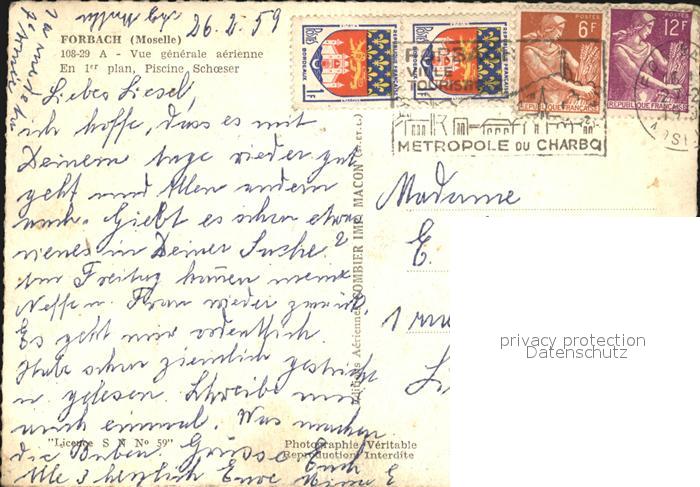 26.2.59
FORBACH (Moselle)
108-29 A - Vue générale aérienne
En 1er plan, Piscine Schœser
Liebes Liesel,
ich hoffe, dass es mit
Deinem Auge wieder gut
geht und Allen andern
auch. Giebt es schon etwas
neues in Deiner Suche?
Am Freitag kamen meine
Neffe u. Frau wieder zurück.
Es geht mir ordentlich.
Habe schon ziemlich gestrickt
u gelesen. Schreibe mir
auch einmal. Was machen
die Buben. Grüsse Euch
Alle 3 herzlich Eure
"Licence S N No 59"
Photographie Véritable
Reproduction Interdite
Editions Aériennes COMBIER IMP. MACON
BORDEAUX
1F
POSTES
6F
REPUBLIQUE FRANÇAISE
POSTES
12F
REPUBLIQUE FRANÇAISE
FORBACH
VILLE
TOURISTIQUE
METROPOLE DU CHARBO
Madame
E.
1 rue
privacy protection
Datenschutz